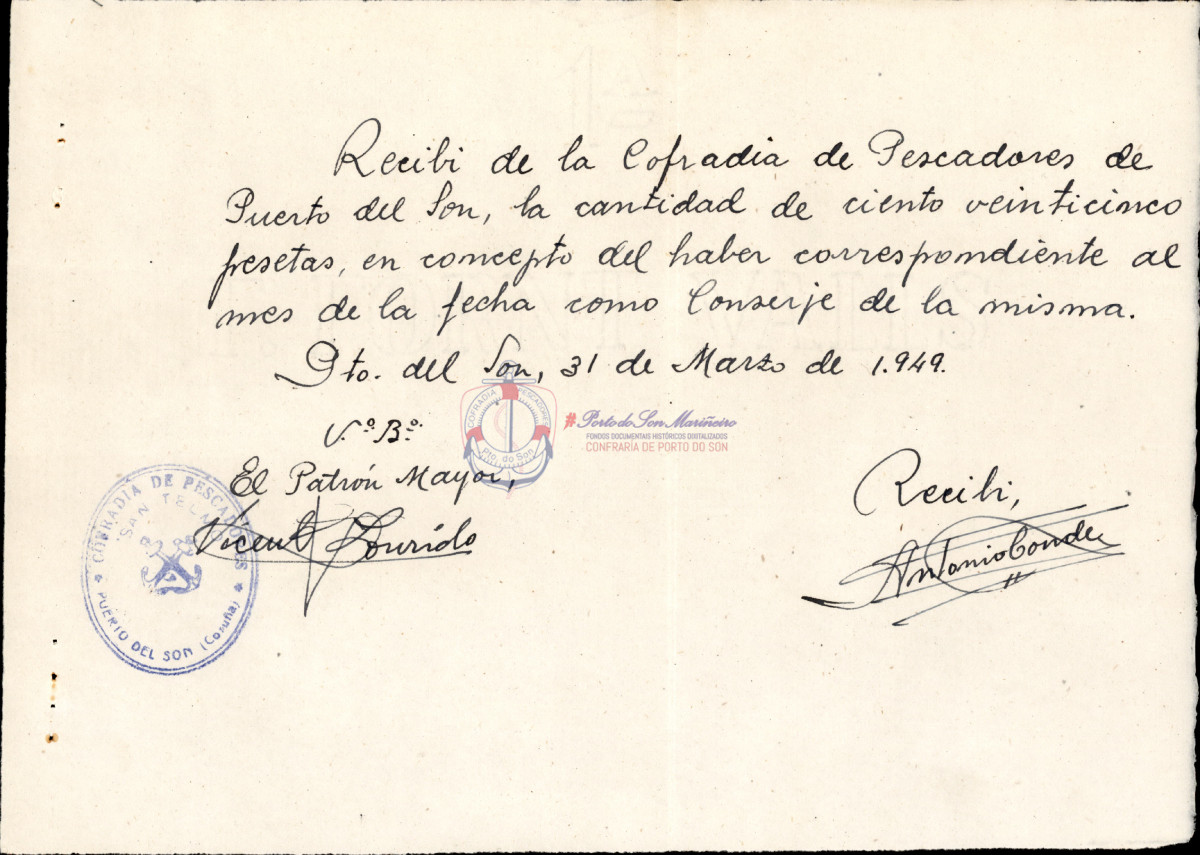 Recibi de la Cofradia de Pescadores de
Puerto del Son, la cantidad de ciento veinticinco
pesetas, en concepto del haber correspondiente al
mes de la fecha como Conserje de la misma.
Pto. del Son, 31 de Marzo de 1.949.
COFRADIA PESCADORES
Pto. do Son
#Porto do Son Mariñeiro
FONDOS DOCUMENTAIS HISTÓRICOS DIXITALIZADOS
CONFRARÍA DE PORTO DO SON
V.º B.º
El Patrón Mayor,
Recibi,
COFRADIA DE PESCADORES
"SAN TELMO"
PUERTO DEL SON (Coruña)
Vicent Lourido
Antonio Conde